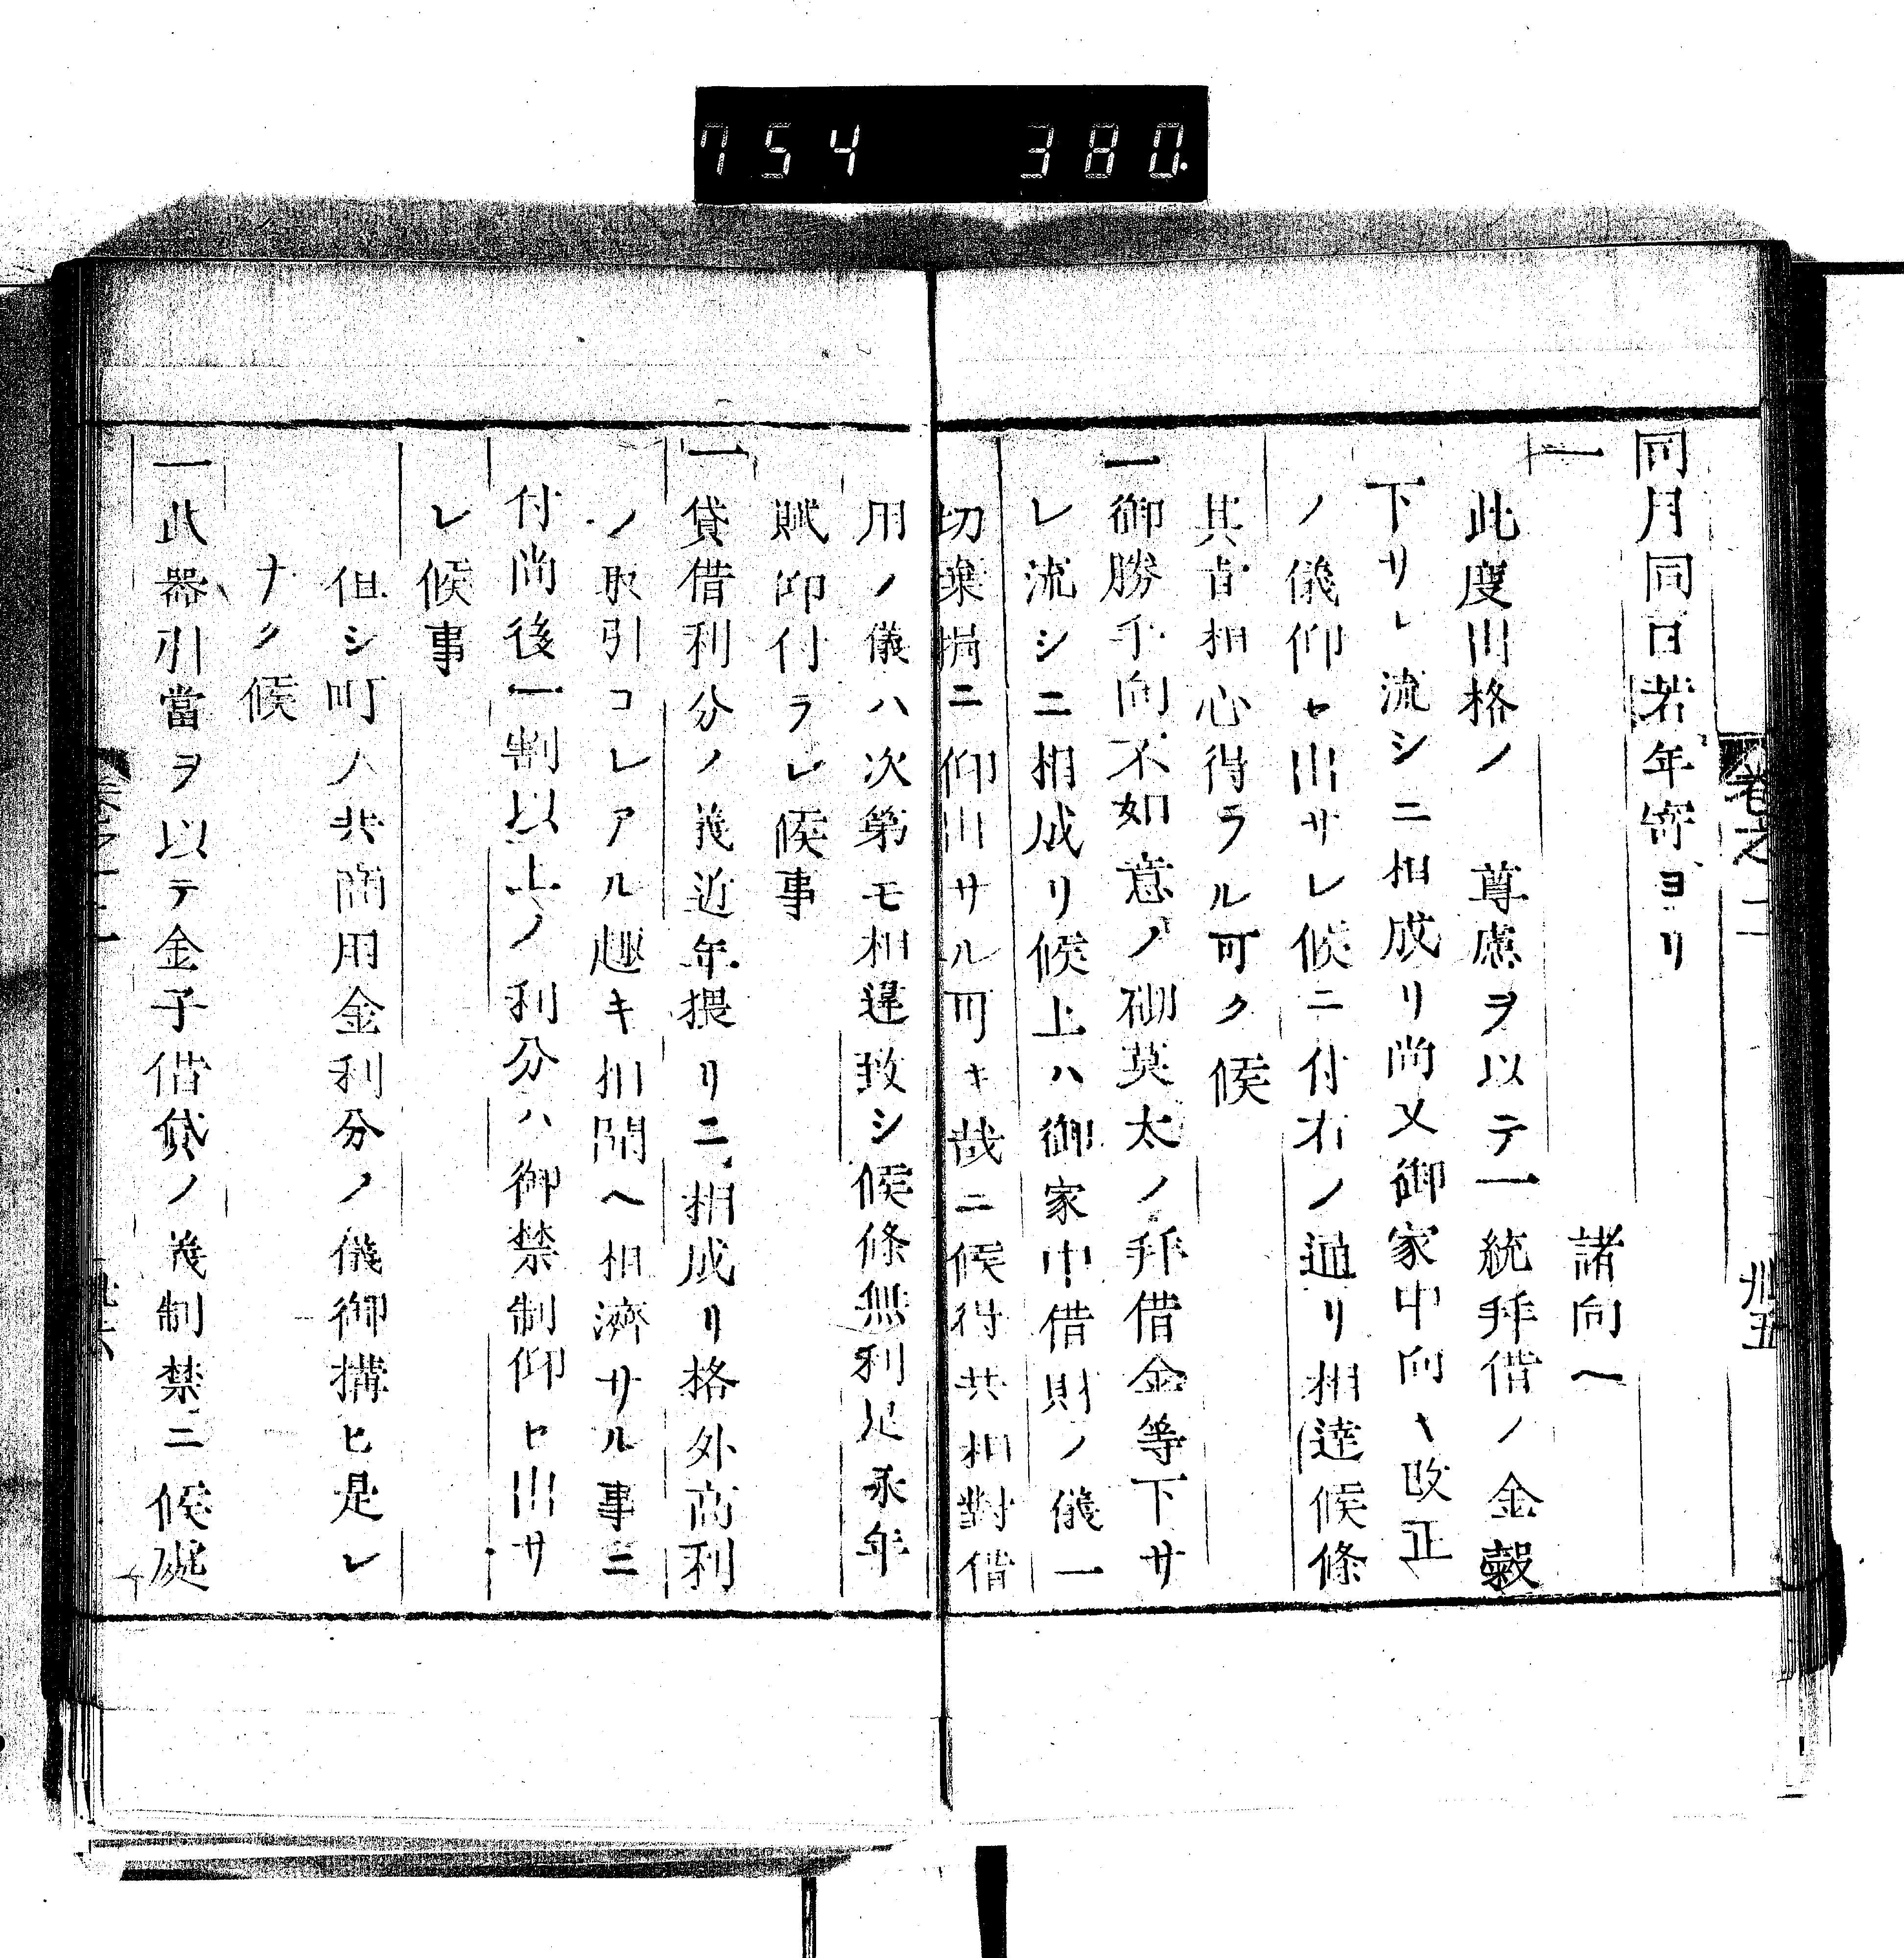 754 380.
卷之二 丗五
同月同日若年寄ヨリ
諸向ヘ
一
此度出格ノ 尊慮ヲ以テ一統拜借ノ金穀
下サレ流シニ相成リ尚又御家中向々改正
ノ儀仰セ出サレ候ニ付右ノ通リ相達候條
其旨相心得ラル可ク候
一御勝手向不如意ノ砌莫太ノ拜借金等下サ
レ流シニ相成リ候上ハ御家中借財ノ儀一
切棄捐ニ仰出サル可キ哉ニ候得共相對借
用ノ儀ハ次第モ相違致シ候條無利足永年
賦仰付ラレ候事
一貸借利分ノ儀近年猥リニ相成リ格外高利
ノ取引コレアル趣キ相聞ヘ相濟サル事ニ
付尚後一割以上ノ利分ハ御禁制仰セ出サ
レ候事
但シ町人共商用金利分ノ儀御搆ヒ是レ
ナク候
一武器引當ヲ以テ金子借貸ノ儀制禁ニ候處